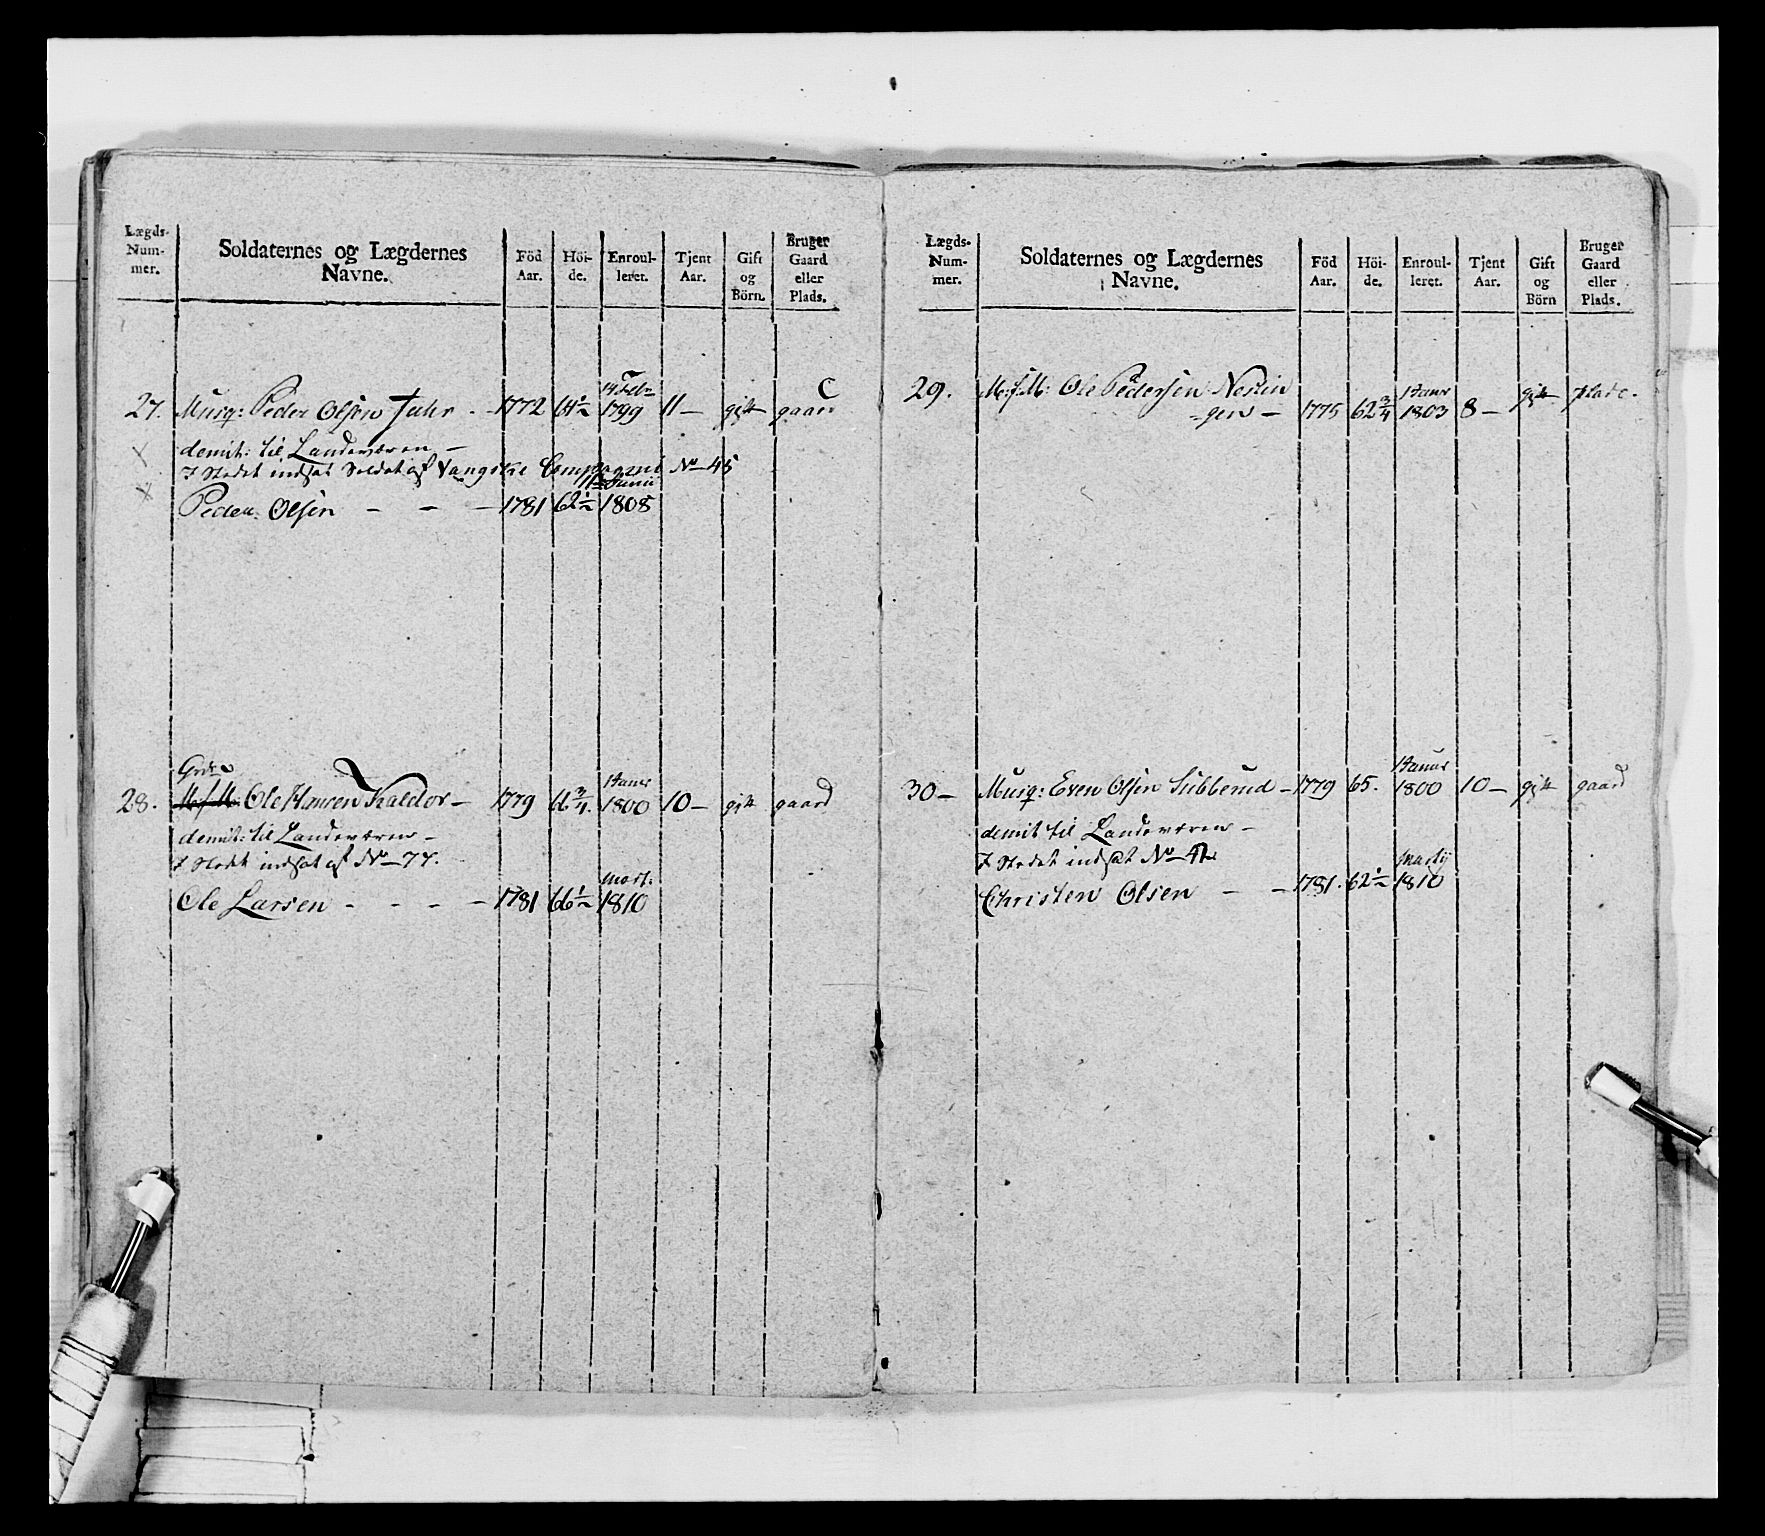 Lægds-
Num-
mer.
Soldaternes og Lægdernes
Navne.
Föd
Aar.
Höi-
de.
Enroul-
leret.
Tjent
Aar.
Gift
og
Börn.
Bruger
Gaard
eller
Plads.
14 Febr
C
27. Musq: Peder Olsen - 1772 64½ 1799 11 - gift gaard
demit: til Landeværen -
I Stedet indsat Soldat af Vangske Compagni No 45
11 Junii
Peder Olsen - - - 1781 62½ 1808
Grd:
Janr
28. M:f:M: Ole Hansen Kaldor - 1779 6 ¾. 1800 10 - gift gaard
demit: til Landeværen -
I Stedet indsat af No - 77.
Mart:
Ole Larsen - - - - 1781 66½ 1810
Lægds-
Num-
mer.
Soldaternes og Lægdernes
Navne.
Föd
Aar.
Höi-
de.
Enroul-
leret.
Tjent
Aar.
Gift
og
Börn
Bruger
Gaard
eller
Plads.
29. M:f:M: Ole Pedersen Nestin
Janr
-gen - 1775 62¾ 1803 8 - gift
Janur
30 - Musq: Even Olsen Subberud - 1779 65. 1800 10 - gift gaard
demit til Landeværen -
I Stedet indsat No
Martij
Christen Olsen - - 1781. 62½ 1810